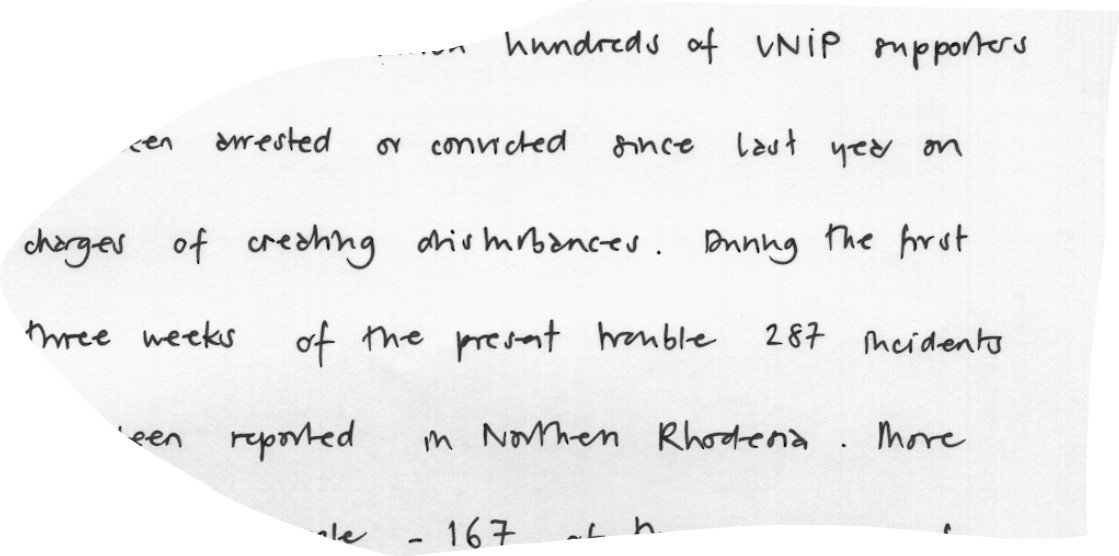 hundreds of UNIP supporters
arrested or convicted since last year on
charges of creating disturbances. During the first
three weeks of the present trouble 287 incidents
reported in Northen Rhodesia. More
- 167